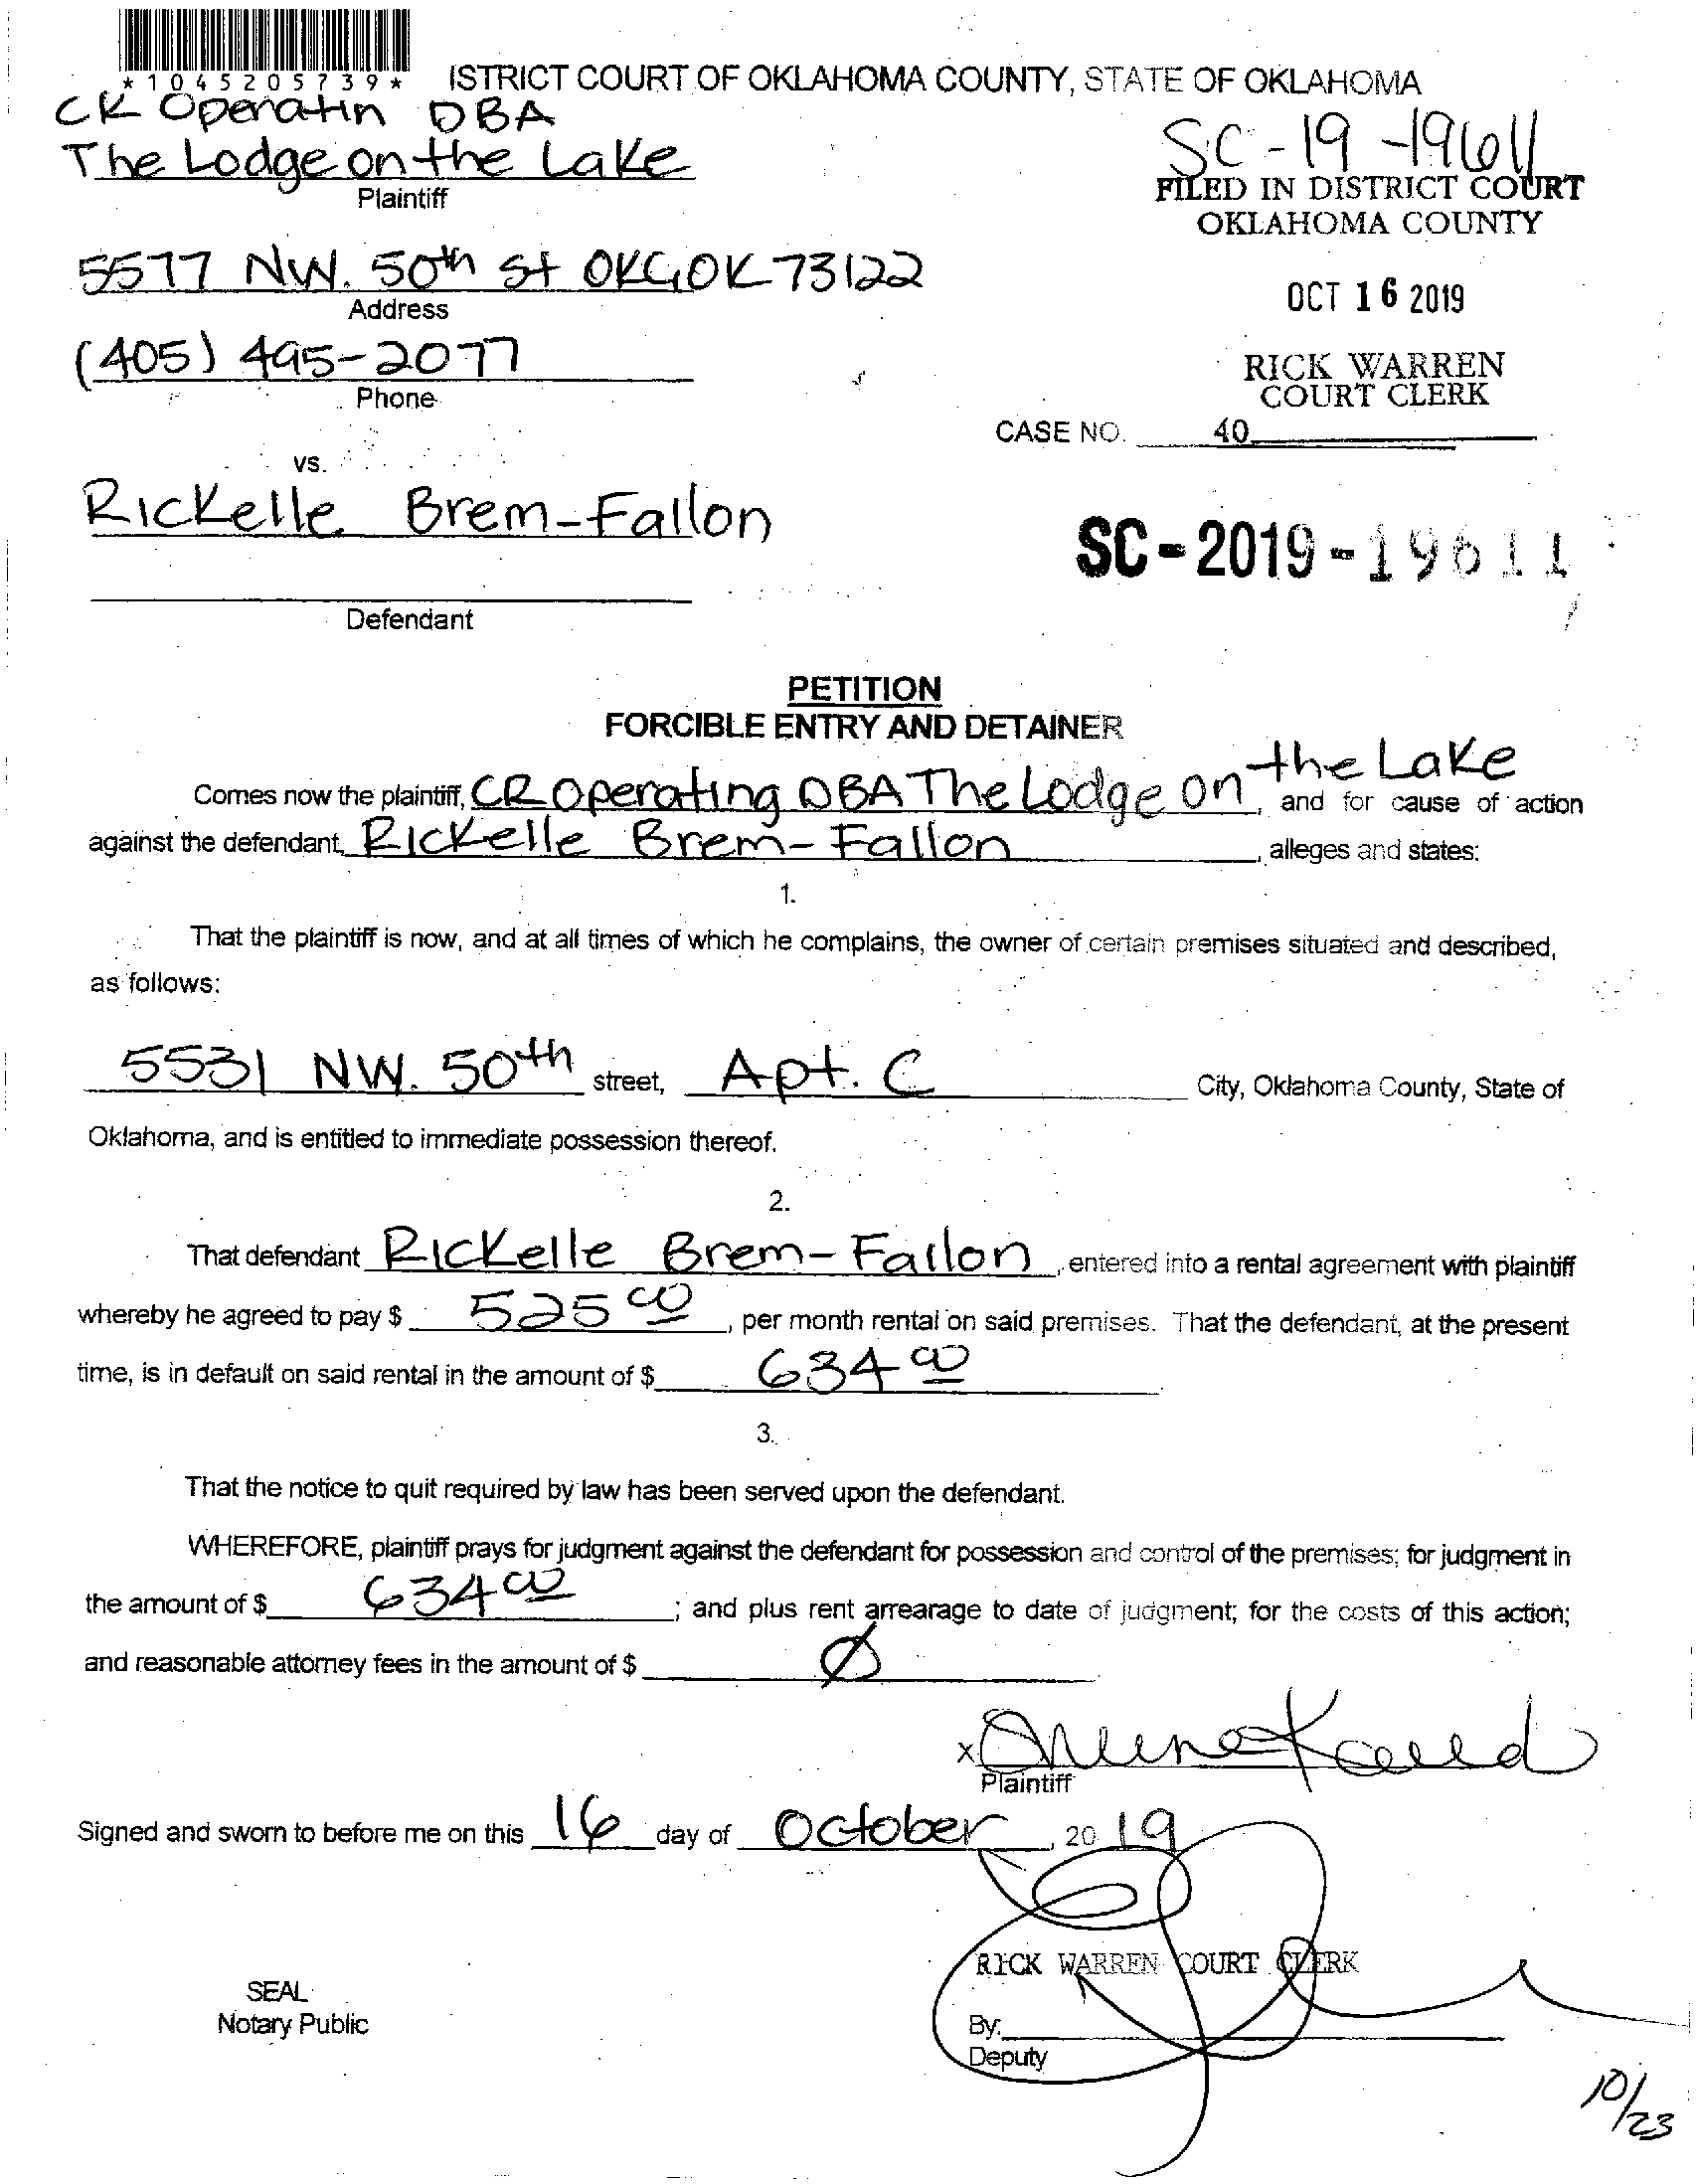 *1045205739*
ISTRICT COURT OF OKLAHOMA COUNTY, STATE OF OKLAHOMA
CK Operatin DBA
The Lodge on the Lake
Plaintiff
SC-19-19611
FILED IN DISTRICT COURT
OKLAHOMA COUNTY
5577 NW. 50th St OKC, OK 73122
Address
OCT 16 2019
(405) 495-2077
Phone
RICK WARREN
COURT CLERK
CASE NO. 40
vs.
Rickelle Brem-Fallon
SC-2019-19611
Defendant
PETITION
FORCIBLE ENTRY AND DETAINER
Comes now the plaintiff, CR Operating DBA The Lodge on the Lake, and for cause of action
against the defendant, Rickelle Brem-Fallon, alleges and states:
1.
That the plaintiff is now, and at all times of which he complains, the owner of certain premises situated and described,
as follows:
5531 NW. 50th street, Apt. C City, Oklahoma County, State of
Oklahoma, and is entitled to immediate possession thereof.
2.
That defendant Rickelle Brem-Fallon, entered into a rental agreement with plaintiff
whereby he agreed to pay $ 525 00, per month rental on said premises. That the defendant, at the present
time, is in default on said rental in the amount of $ 634 00
3.
That the notice to quit required by law has been served upon the defendant.
WHEREFORE, plaintiff prays for judgment against the defendant for possession and control of the premises; for judgment in
the amount of $ 634 00; and plus rent arrearage to date of judgment; for the costs of this action;
and reasonable attorney fees in the amount of $ Ø
x
Plaintiff
Signed and sworn to before me on this 16 day of October, 2019
RICK WARREN COURT CLERK
SEAL
Notary Public
By:
Deputy
10/23